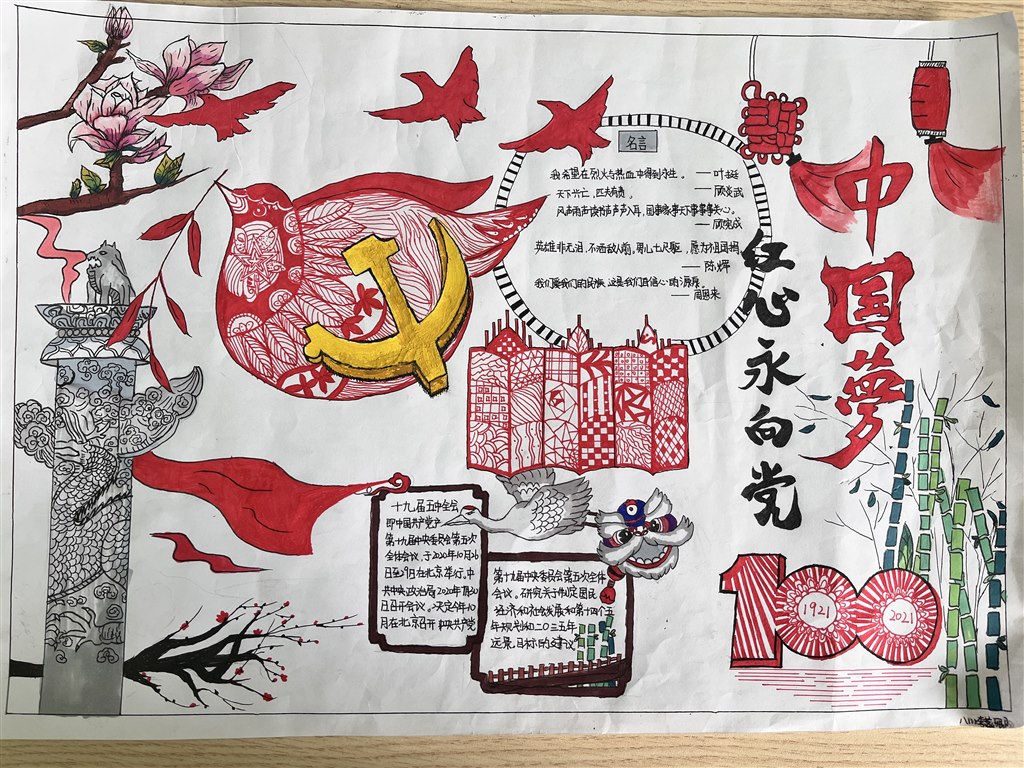 名言
我希望在烈火与热血中得到永生。——叶挺
天下兴亡，匹夫有责。——顾炎武
风声雨声读书声声声入耳，国事家事天下事事事关心。
——顾宪成
英雄非无泪，不洒敌人前。男儿七尺躯，愿为祖国捐
——陈辉
我们爱我们的民族，这是我们自信心的源泉。
——周恩来
中国梦
红心永向党
十九届五中全会
即中国共产党
第十九届中央委员会第五次
全体会议，于2020年10月26
日至29日在北京举行。中
共中央政治局2020年7月30
日召开会议。决定今年10
月在北京召开中央共产党
第十九届中央委员会第五次全体
会议。研究关于制定国民
经济和社会发展和第十四个五
年规划和二〇三五年
远景目标的建议
100
1921
2021